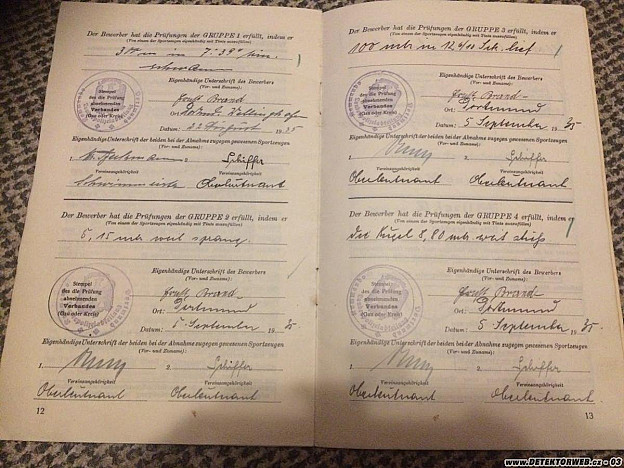 Der Bewerber hat die Prüfungen der GRUPPE 1 erfüllt, indem er
(Von einem der Sportzeugen eigenhändig mit Tinte auszufüllen)
300 m in 7:39 Min.
schwamm
Eigenhändige Unterschrift des Bewerbers
(Vor- und Zuname):
Brand
Stempel
des die Prüfung
abnehmenden
Verbandes
(Gau oder Kreis)
Ort:
Datum: 1935
Eigenhändige Unterschriften der beiden bei der Abnahme zugegen gewesenen Sportzeugen
(Vor- und Zuname):
1. 2. Schiffer
Vereinszugehörigkeit Vereinszugehörigkeit
Oberleutnant
Der Bewerber hat die Prüfungen der GRUPPE 2 erfüllt, indem er
(Von einem der Sportzeugen eigenhändig mit Tinte auszufüllen)
5,15 mtr weit sprang.
Eigenhändige Unterschrift des Bewerbers
(Vor- und Zuname):
Brand
Stempel
des die Prüfung
abnehmenden
Verbandes
(Gau oder Kreis)
Ort: Dortmund
Datum: 5. September 1935
Eigenhändige Unterschriften der beiden bei der Abnahme zugegen gewesenen Sportzeugen
(Vor- und Zuname):
1. 2. Schiffer
Vereinszugehörigkeit Vereinszugehörigkeit
Oberleutnant Oberleutnant
12
Der Bewerber hat die Prüfungen der GRUPPE 3 erfüllt, indem er
(Von einem der Sportzeugen eigenhändig mit Tinte auszufüllen)
100 mtr in Sek. lief
Eigenhändige Unterschrift des Bewerbers
(Vor- und Zuname):
Brand
Stempel
des die Prüfung
abnehmenden
Verbandes
(Gau oder Kreis)
Ort: Dortmund
Datum: 5 September 1935
Eigenhändige Unterschriften der beiden bei der Abnahme zugegen gewesenen Sportzeugen
(Vor- und Zuname):
1. 2. Schiffer
Vereinszugehörigkeit Vereinszugehörigkeit
Oberleutnant Oberleutnant
Der Bewerber hat die Prüfungen der GRUPPE 4 erfüllt, indem er
(Von einem der Sportzeugen eigenhändig mit Tinte auszufüllen)
die Kugel 8,80 mtr. weit stieß
Eigenhändige Unterschrift des Bewerbers
(Vor- und Zuname):
Brand
Stempel
des die Prüfung
abnehmenden
Verbandes
(Gau oder Kreis)
Ort: Dortmund
Datum: 5 September 1935.
Eigenhändige Unterschriften der beiden bei der Abnahme zugegen gewesenen Sportzeugen
(Vor- und Zuname):
1. 2. Schiffer
Vereinszugehörigkeit Vereinszugehörigkeit
Oberleutnant Oberleutnant
13
www.DETEKTORWEB.cz - 03